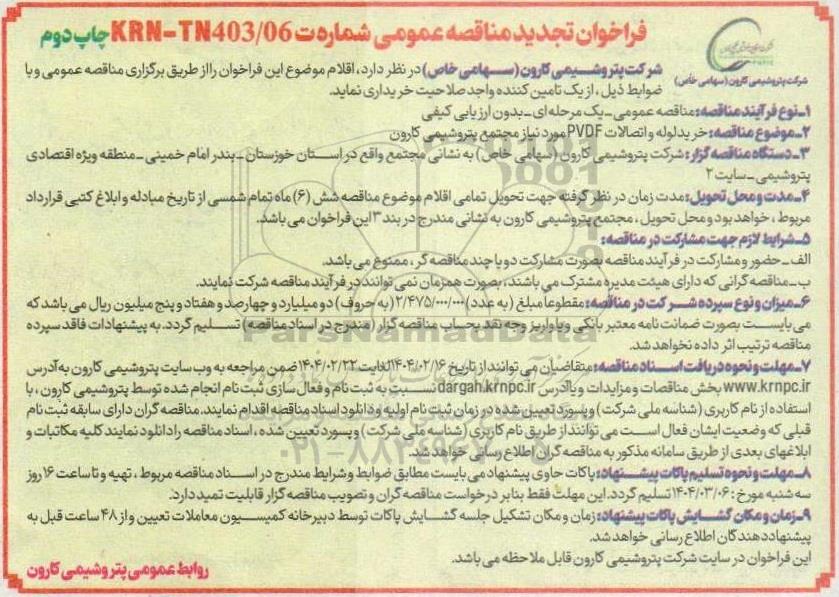 فراخوان تجدید مناقصه عمومی شماره ت KRN-TN403/06 چاپ دوم
شرکت پتروشیمی کارون (سهامی خاص)
شرکت پتروشیمی کارون (سهامی خاص) در نظر دارد، اقلام موضوع این فراخوان را از طریق برگزاری مناقصه عمومی و با
ضوابط ذیل، از یک تامین کننده واجد صلاحیت خریداری نماید.
۱ـ نوع فرآیند مناقصه: مناقصه عمومی ـ یک مرحله ای ـ بدون ارزیابی کیفی
۲ـ موضوع مناقصه: خرید لوله و اتصالات PVDF مورد نیاز مجتمع پتروشیمی کارون
۳ـ دستگاه مناقصه گزار: شرکت پتروشیمی کارون (سهامی خاص) به نشانی مجتمع واقع در استان خوزستان ـ بندر امام خمینی ـ منطقه ویژه اقتصادی
پتروشیمی ـ سایت ۲
۴ـ مدت و محل تحویل: مدت زمان در نظر گرفته جهت تحویل تمامی اقلام موضوع مناقصه شش (۶) ماه تمام شمسی از تاریخ مبادله و ابلاغ کتبی قرارداد
مربوط، خواهد بود و محل تحویل، مجتمع پتروشیمی کارون به نشانی مندرج در بند ۳ این فراخوان می باشد.
۵ـ شرایط لازم جهت مشارکت در مناقصه:
الف ـ حضور و مشارکت در فرآیند مناقصه بصورت مشارکت دو یا چند مناقصه گر، ممنوع می باشد.
ب ـ مناقصه گرانی که دارای هیئت مدیره مشترک می باشند، بصورت همزمان نمی توانند در فرآیند مناقصه شرکت نمایند.
۶ـ میزان و نوع سپرده شرکت در مناقصه: مقطوعا مبلغ (به عدد) ۲/۴۷۵/۰۰۰/۰۰۰ (به حروف) دو میلیارد و چهارصد و هفتاد و پنج میلیون ریال می باشد که
می بایست بصورت ضمانت نامه معتبر بانکی و یا واریز وجه نقد بحساب مناقصه گزار (مندرج در اسناد مناقصه) تسلیم گردد. به پیشنهادات فاقد سپرده
مناقصه ترتیب اثر داده نخواهد شد.
۷ـ مهلت و نحوه دریافت اسناد مناقصه: متقاضیان می توانند از تاریخ ۱۴۰۴/۰۲/۱۶ لغایت ۱۴۰۴/۰۲/۲۲ ضمن مراجعه به وب سایت پتروشیمی کارون به آدرس
www.krnpc.ir بخش مناقصات و مزایدات و یا آدرس dargah.krnpc.ir نسبت به ثبت نام و فعال سازی ثبت نام انجام شده توسط پتروشیمی کارون، با
استفاده از نام کاربری (شناسه ملی شرکت) و پسورد تعیین شده در زمان ثبت نام اولیه و دانلود اسناد مناقصه اقدام نمایند. مناقصه گران دارای سابقه ثبت نام
قبلی که وضعیت ایشان فعال است می توانند از طریق نام کاربری (شناسه ملی شرکت) و پسورد تعیین شده، اسناد مناقصه را دانلود نمایند کلیه مکاتبات و
ابلاغهای بعدی از طریق سامانه مذکور به مناقصه گران اطلاع رسانی خواهد شد.
۸ـ مهلت و نحوه تسلیم پاکات پیشنهاد: پاکات حاوی پیشنهاد می بایست مطابق ضوابط و شرایط مندرج در اسناد مناقصه مربوط، تهیه و تا ساعت ۱۶ روز
سه شنبه مورخ: ۱۴۰۴/۰۳/۰۶ تسلیم گردد. این مهلت فقط بنابر درخواست مناقصه گران و تصویب مناقصه گزار قابلیت تمدید دارد.
۹ـ زمان و مکان گشایش پاکات پیشنهاد: زمان و مکان تشکیل جلسه گشایش پاکات توسط دبیرخانه کمیسیون معاملات تعیین و از ۴۸ ساعت قبل به
پیشنهاد دهندگان اطلاع رسانی خواهد شد.
این فراخوان در سایت شرکت پتروشیمی کارون قابل ملاحظه می باشد.
روابط عمومی پتروشیمی کارون
ParsNamadData